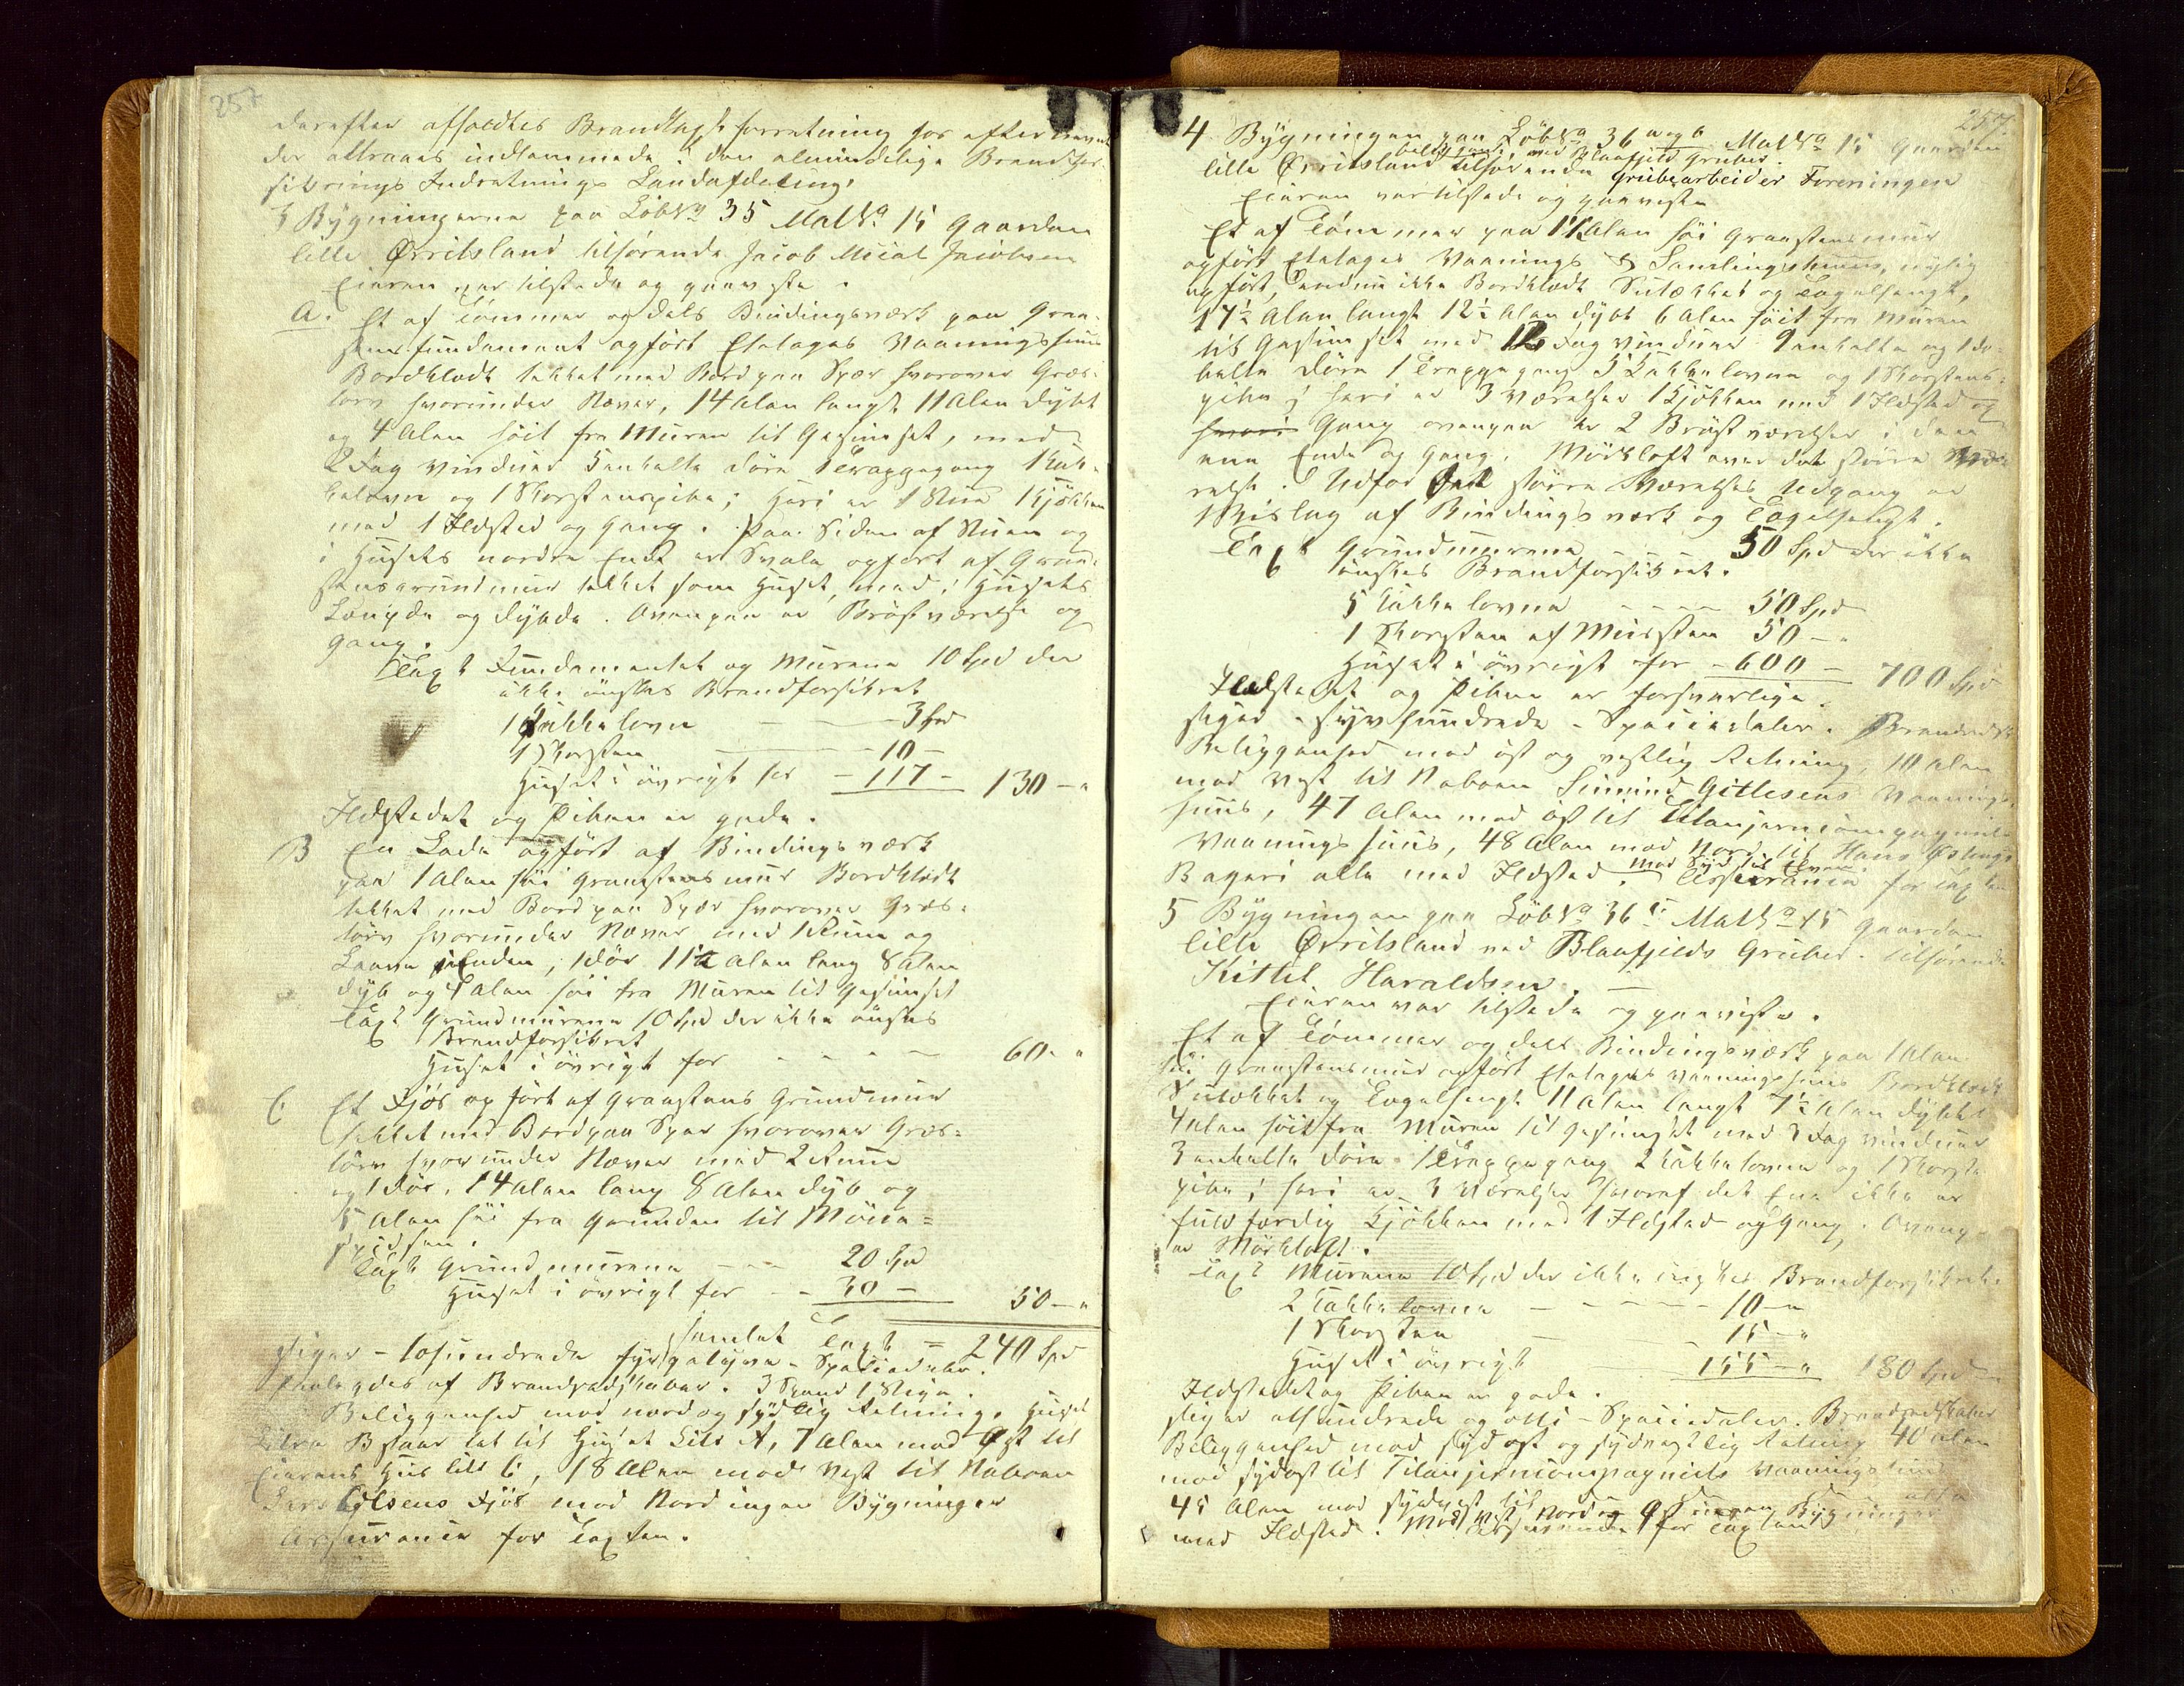 257
derefter afholdtes Brandtaxt forretning for efternævnte
der attraaes indlemmede i den almindelige Brandfor-
sikrings Indretnings Landafdeling.
3 Bygningerne paa LøbNo 35 MatNo 15 Gaarden
lille Ørritsland tilhørende Jacob Micael Jacobsen
Eieren var tilstede og paaviste.
A. Et af Tømmer og dels Bindingsværk paa Graa-
steensfundament opført Eetages Vaaningshuus
Bordklædt tækket med Bord paa Spær hvorover Græs-
törv hvorunder Næver, 14 Alen langt 11 Alen dybt
og 4 Alen höit fra Muren til Gesimset, med
2 Fag Vinduer 5 enkelte Döre 1 Trappegang 1 Kak-
kelovn og 1 Skorstenspibe; Heri er 1 Stue 1 Kjökken
med 1 Ildsted og Gang. Paa Siden af Stuen og
i Husets nordre Ende er Svale opfört af Graa-
steensgrundmur tækket som Huset, med i Husets
Længde og Dybde. Ovenpaa er Bröstværelse og
Gang.
Taxt Fundamentet og Murene 10 Spd der
ikke önskes Brandforsikret
1 Kakkelovn — 3 Spd
1 Skorsten — 10 —
Huset i övrigt for — 117 — 130 — "
Ildstedet og Piben er gode.
B En Lade opfört af Bindingsværk
paa 1 Alen höi Graasteensmur Bordklædt
tækket med Bord paa Spær hvorover Græs-
törv hvorunder Næver med 1 Rum og
Laave i Enden, 1 Dör 11½ Alen lang 8 Alen
dyb og 4 Alen höi fra Muren til Gesimset
Taxt Grundmurene 10 Spd der ikke önskes
Brandforsikret
Huset i övrigt for — 60 — "
C Et Fjös opfört af Graasteens Grundmur
tækket med Bord paa Spær hvorover Græs-
törv hvorunder Næver med 2 Rum
og 1 Dör, 14 Alen lang 8 Alen dyb og
5 Alen höi fra Grunden til Möne-
spidsen.
Taxt Grundmurene — 20 Spd
Huset i övrigt for — 30 — 50 — "
samlet Taxt = 240 Spd
siger – tohundrede fyrgetyve – Speciedaler.
Forlangdes af Brandredskaber. 3 Spand 1 Stige.
Beliggenhed mod nord og sydlig Retning. Huset
Litra B staar tæt til Huset Litr A, 7 Alen mod Øst til
Eierens Hus litr C, 18 Alen mod Vest til Naboen
Lars Olsens Fjös mod Nord ingen Bygninger
Assurance for Taxten.
257.
4 Bygningen paa LøbNo 36 a og b MatNo 15 Gaarden
beliggende ved Blaafjeld Gruber.
lille Ørritsland tilhørende Grubearbeider Foreningen
Eieren var tilstede og paaviste
Et af Tömmer paa 1½ Alen höi Graasteensmur
opfört Eetages Vaanings & Samlingshuus, nylig
opfört, endnu ikke Bordklædt Sutækket og Tagelhængt,
17½ Alen langt 12½ Alen dybt 6 Alen höit fra Muren
til Gesimset med 12 Fag Vinduer 9 enkelte og 1 do-
belte Döre 1 Trappegang 5 Kakkelovne og 1 Skorstens-
pibe; heri er 3 Værelser 1 Kjökken med 1 Ildsted og
Gang ovenpaa er 2 Bröstværelser i den
ene Ende og Gang. Mörkloft over det större Være-
relse. Udfor det större Værelses Udgang er
1 Bislag af Bindingsværk og Tagelhængt.
Taxt Grundmurene 50 Spd der ikke
önskes Brandforsikret.
5 Kakkelovne — 50 Spd
1 Skorsten af Mursten 50 — "
Huset i övrigt for — 600 — 700 Spd
Ildstedet og Piben er forsvarlige.
siger – syvhundrede – Speciedaler. Brandredsk
Beliggenhed mod öst og vestlig Retning, 10 Alen
mod Vest til Naboen Simund Gitlesens Vaanings-
huus, 47 Alen mod öst til Titanjerncompagniets
Vaaningshuus, 48 Alen mod Nord til Hans Østengs
Bageri alle med Ildsted. mod Syd til Elven. Assurance for Taxten
5 Bygningen paa LøbNo 36 c MatNo 15 Gaarden
lille Ørritsland ved Blaafjelds Gruber tilhörende
Kittil Haraldsen. —
Eieren var tilstede og paaviste.
Et af Tömmer og dels Bindingsværk paa 1 Alen
höi Graasteensmur opfört Eetages Vaaningshuus Bordklædt
Sutækket og Tagelhængt 11 Alen langt 7½ Alen dybt
4 Alen höit fra Muren til Gesimset med 8 Fag Vinduer
3 enkelte Döre 1 Trappegang 2 Kakkelovne og 1 Skorstens
pibe; heri er 3 Værelser hvoraf det Ene ikke er
fuldfærdig Kjökken med 1 Ildsted og Gang. Ovenpaa
er Mörkloft.
Taxt Murene 10 Spd der ikke önskes Brandforsikret.
2 Kakkelovne — 10 — "
1 Skorsten — 15 — "
Huset i övrigt 155 — " 180 Spd
Ildstedet og Piben er gode.
siger ethundrede og otti – Speciedaler. Brandredskaber
Beliggenhed mod sydost og sydvestlig Retning 40 Alen
mod sydost til Titanjerncompagniets Vaaningshuus
45 Alen mod sydvest til
med Ildsted. Mod Vest, Nord og Öst ingen Bygninger
Assurance for Taxten